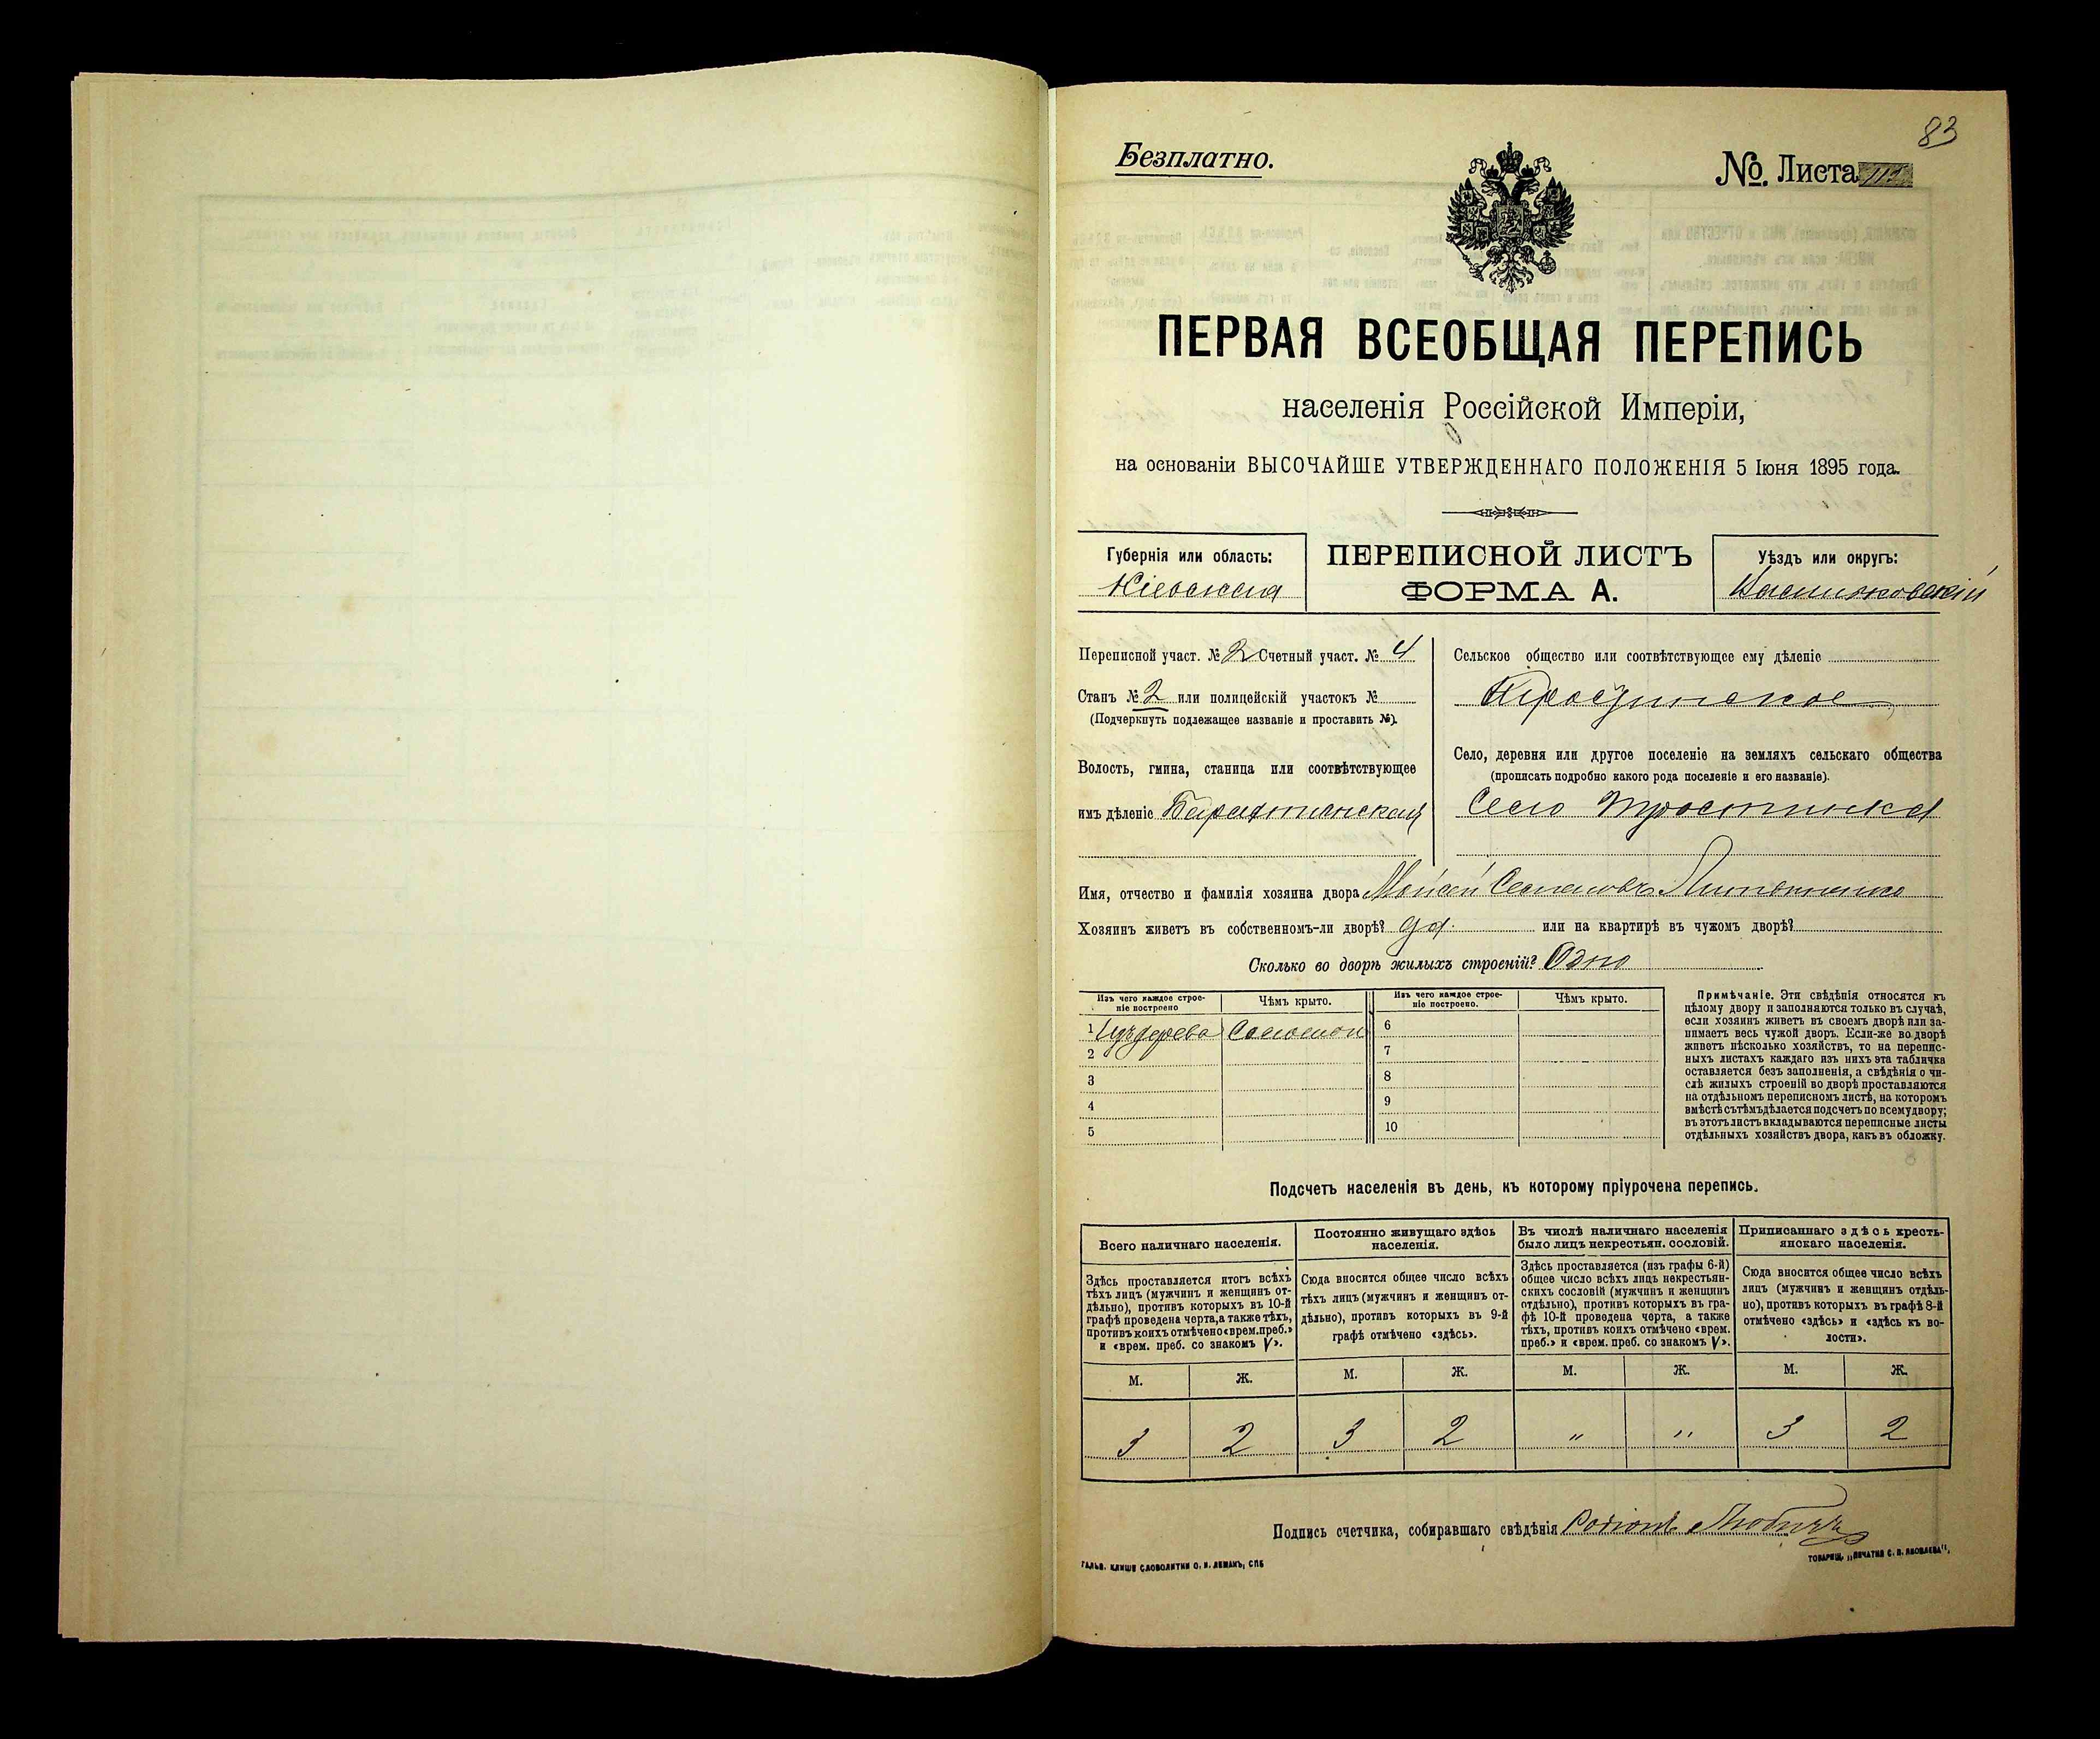 83
Безплатно.
№. Листа 112
ПЕРВАЯ ВСЕОБЩАЯ ПЕРЕПИСЬ
населенія Россійской Имперіи,
на основаніи ВЫСОЧАЙШЕ УТВЕРЖДЕННАГО ПОЛОЖЕНІЯ 5 Іюня 1895 года.
Губернія или область:
Кіевская
ПЕРЕПИСНОЙ ЛИСТЪ
ФОРМА А.
Уѣздъ или округъ:
Васильковскій
Переписной участ. № 2 Счетный участ. № 4
Станъ № 2 или полицейскій участокъ №
(Подчеркнуть подлежащее названіе и проставить №).
Волость, гмина, станица или соотвѣтствующее
имъ дѣленіе Барахтянская
Сельское общество или соотвѣтствующее ему дѣленіе
Тростинское
Село, деревня или другое поселеніе на земляхъ сельскаго общества
(прописать подробно какого рода поселеніе и его названіе).
Село Тростинка
Имя, отчество и фамилія хозяина двора Мойсей
Хозяинъ живетъ въ собственномъ-ли дворѣ? да. или на квартирѣ въ чужомъ дворѣ?
Сколько во дворѣ жилыхъ строеній? Одно
Изъ чего каждое строе-
ніе построено
Чѣмъ крыто.
Изъ чего каждое строе-
ніе построено.
Чѣмъ крыто.
1 Изъ дерева Соломой
2
3
4
5
6
7
8
9
10
Примѣчаніе. Эти свѣдѣнія относятся къ
цѣлому двору и заполняются только въ случаѣ,
если хозяинъ живетъ въ своемъ дворѣ или за-
нимаетъ весь чужой дворъ. Если-же во дворѣ
живетъ нѣсколько хозяйствъ, то на перепис-
ныхъ листахъ каждаго изъ нихъ эта табличка
оставляется безъ заполненія, а свѣдѣнія о чи-
слѣ жилыхъ строеній во дворѣ проставляются
на отдѣльномъ переписномъ листѣ, на которомъ
вмѣстѣ съ тѣмъ дѣлается подсчетъ по всему двору;
въ этотъ листъ вкладываются переписные листы
отдѣльныхъ хозяйствъ двора, какъ въ обложку.
Подсчетъ населенія въ день, къ которому пріурочена перепись.
Всего наличнаго населенія.
Здѣсь проставляется итогъ всѣхъ
тѣхъ лицъ (мужчинъ и женщинъ от-
дѣльно), противъ которыхъ въ 10-й
графѣ проведена черта, а также тѣхъ,
противъ коихъ отмѣчено «врем. преб.»
и «врем. преб. со знакомъ V».
Постоянно живущаго здѣсь
населенія.
Сюда вносится общее число всѣхъ
тѣхъ лицъ (мужчинъ и женщинъ от-
дѣльно), противъ которыхъ въ 9-й
графѣ отмѣчено «здѣсь».
Въ числѣ наличнаго населенія
было лицъ некрестьян. сословій.
Здѣсь проставляется (изъ графы 6-й)
общее число всѣхъ лицъ некрестьян-
скихъ сословій (мужчинъ и женщинъ
отдѣльно), противъ которыхъ въ гра-
фѣ 10-й проведена черта, а также
тѣхъ, противъ коихъ отмѣчено «врем.
преб.» и «врем. преб. со знакомъ V».
Приписаннаго здѣсь кресть-
янскаго населенія.
Сюда вносится общее число всѣхъ
лицъ (мужчинъ и женщинъ отдѣль-
но), противъ которыхъ въ графѣ 8-й
отмѣчено «здѣсь» и «здѣсь къ во-
лости».
М. Ж. М. Ж. М. Ж. М. Ж.
3 2 3 2 „ „ 3 2
Подпись счетчика, собиравшаго свѣдѣнія
ГАЛЬВ. КЛИШЕ СЛОВОЛИТНИ О. И. ЛЕМАНЪ, СПБ
ТОВАРИЩ. „ПЕЧАТНЯ С. П. ЯКОВЛЕВА“,